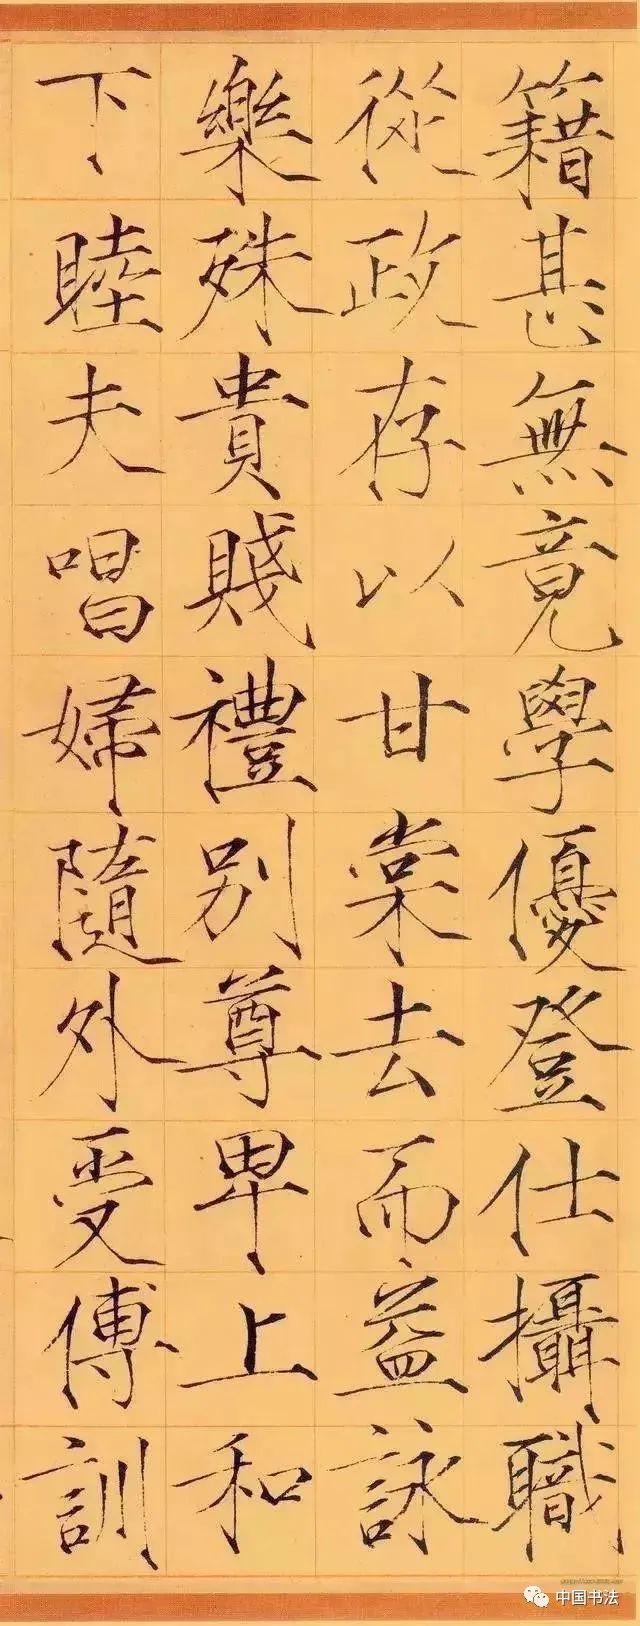 籍甚無竟學優登仕攝職
從政存以甘棠去而益詠
樂殊貴賤禮別尊卑上和
下睦夫唱婦隨外受傅訓
中国书法